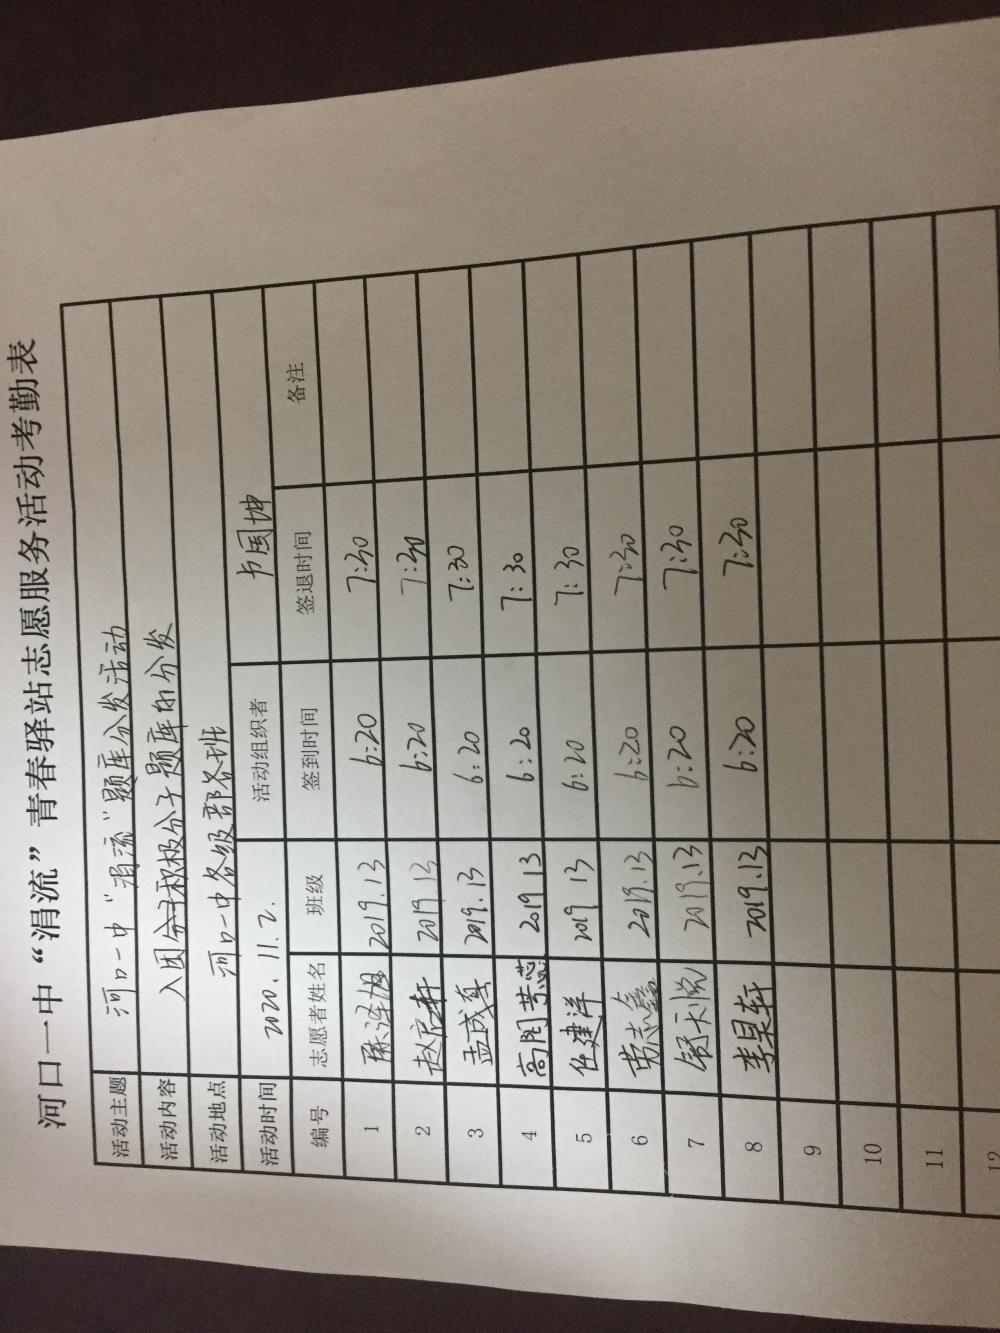 河口一中“涓流”青春驿站志愿服务活动考勤表
活动主题 河口一中“涓流”题库分发活动
活动内容 入团积极分子题库的分发
活动地点 河口一中各级部各班
活动时间 2020.11.2. 活动组织者 卢国坤
编号 志愿者姓名 班级 签到时间 签退时间 备注
1 2019.13 6:20 7:30
2 赵启轩 2019.13 6:20 7:30
3 孟成真 2019.13 6:20 7:30
4 高阁芳蕊 2019 13 6:20 7:30
5 任建洋 2019 13 6:20 7:30
6 志鑫 2019.13 6:20 7:30
7 2019.13 6:20 7:30
8 李昊轩 2019.13 6:20 7:30
9
10
11
12